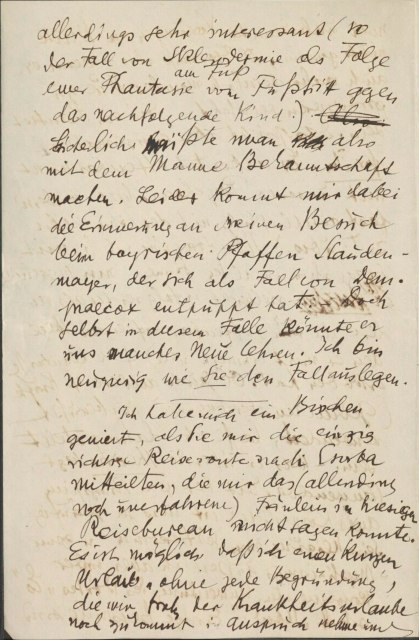 allerdings sehr interessant (so
der Fall von Sklerodermie als Folge
einer Phantasie vom Fußtritt gegen
am Fuß
das nachfolgende Kind.)
Sicherlich müßte man also
mit dem Manne Bekanntschaft
machen. Leider kommt mir dabei
die Erinnerung an meinen Besuch
beim bayrischen Pfaffen Stauden-
mayer, der sich als Fall von Dem.
praecox entpuppt hat. Doch
selbst in diesem Falle könnte er
uns manches Neue lehren. Ich bin
neugierig wie Sie den Fall auslegen.
Ich habe mich ein Bischen
geniert, als Sie mir die einzig
richtige Reiseroute nach
mitteilten, die mir das (allerding
noch unerfahrene) Fräulein im hiesigen
Reisebureau nicht sagen konnte.
Es ist möglich daß ich einen kurzen
Urlaub, ohne jede Begründung,
die mir trotz der Krankheitsurlaube
noch zukommt in Anspruch nehme und